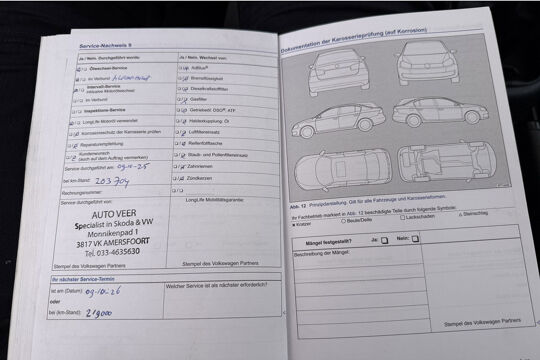 Service-Nachweis 9
Ja / Nein. Durchgeführt wurde:
Ölwechsel-Service
im Verbund
Intervall-Service
inklusive Motorölwechsel
im Verbund
Inspektions-Service
LongLife Motoröl verwendet
Korrosionsschutz der Karosserie prüfen
Reparaturempfehlung
Kundenwunsch
(auch auf dem Auftrag vermerken)
Service durchgeführt am: 09-10-25
bei km-Stand: 203 704
Rechnungsnummer:
Service durchgeführt von:
AUTO VEER
Specialist in Skoda & VW
Monnikenpad 1
3817 VK AMERSFOORT
Tel. 033-4635630
Stempel des Volkswagen Partners
Ja / Nein. Wechsel von:
AdBlue®
Bremsflüssigkeit
Dieselkraftstofffilter
Gasfilter
Getriebeöl: DSG®, ATF
Haldexkupplung: Öl
Luftfiltereinsatz
Reifenfüllflasche
Staub- und Pollenfiltereinsatz
Zahnriemen
Zündkerzen
LongLife Mobilitätsgarantie:
Stempel des Volkswagen Partners
Ihr nächster Service-Termin
ist am (Datum): 09-10-26
oder
bei (km-Stand): 219000
Welcher Service ist als nächster erforderlich?
Dokumentation der Karosserieprüfung (auf Korrosion)
Abb. 12 Prinzipdarstellung. Gilt für alle Fahrzeuge und Karosserieformen.
Ihr Fachbetrieb markiert in Abb. 12 beschädigte Teile durch folgende Symbole:
× Kratzer ○ Beule/Delle □ Lackschaden △ Steinschlag
Mängel festgestellt? Ja: Nein:
Beschreibung der Mängel:
Stempel des Volkswagen Partners